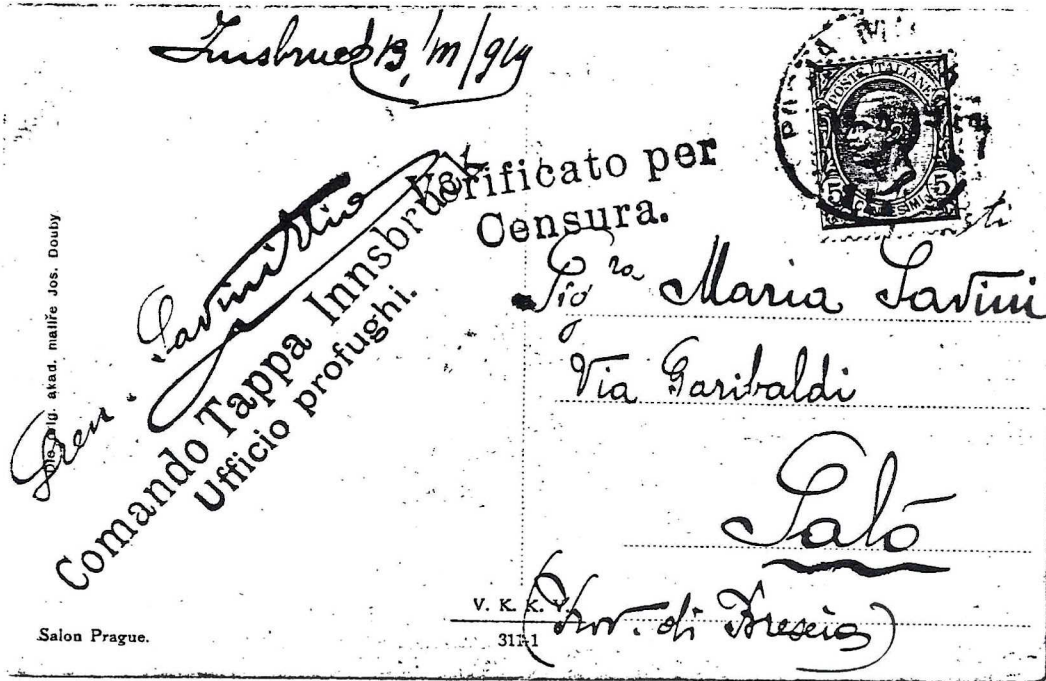 Innsbruck 13/III/919
POSTA MI
POSTE ITALIANE
5 CENTESIMI 5
Verificato per
Censura.
Savini Elio
Comando Tappa Innsbruck
Ufficio profughi.
akad. malíře Jos. Douby
Sig ra Maria Savini
Via Garibaldi
Salò
(Prov. di Brescia)
V. K. K. V.
311-1
Salon Prague.